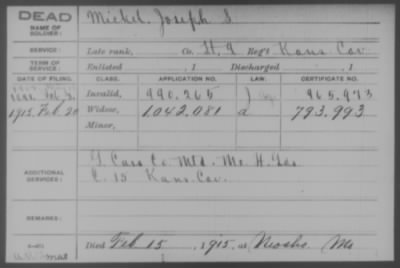 DEAD
NAME OF SOLDIER: Mickel, Joseph S
SERVICE: Late rank, Co. H. 9 Reg't Kans Cav
TERM OF SERVICE: Enlisted , 1 Discharged , 1
DATE OF FILING. CLASS. APPLICATION NO. LAW. CERTIFICATE NO.
Invalid, 990.265 965.973
1915, Feb 20 Widow, 1.042.081 a 793.993
Minor,
ADDITIONAL SERVICES: Cass Co. Mtd. Mo. H. Gds
C. 15 Kans. Cav.
REMARKS:
Died Feb 15, 1915, at Neosho Mo